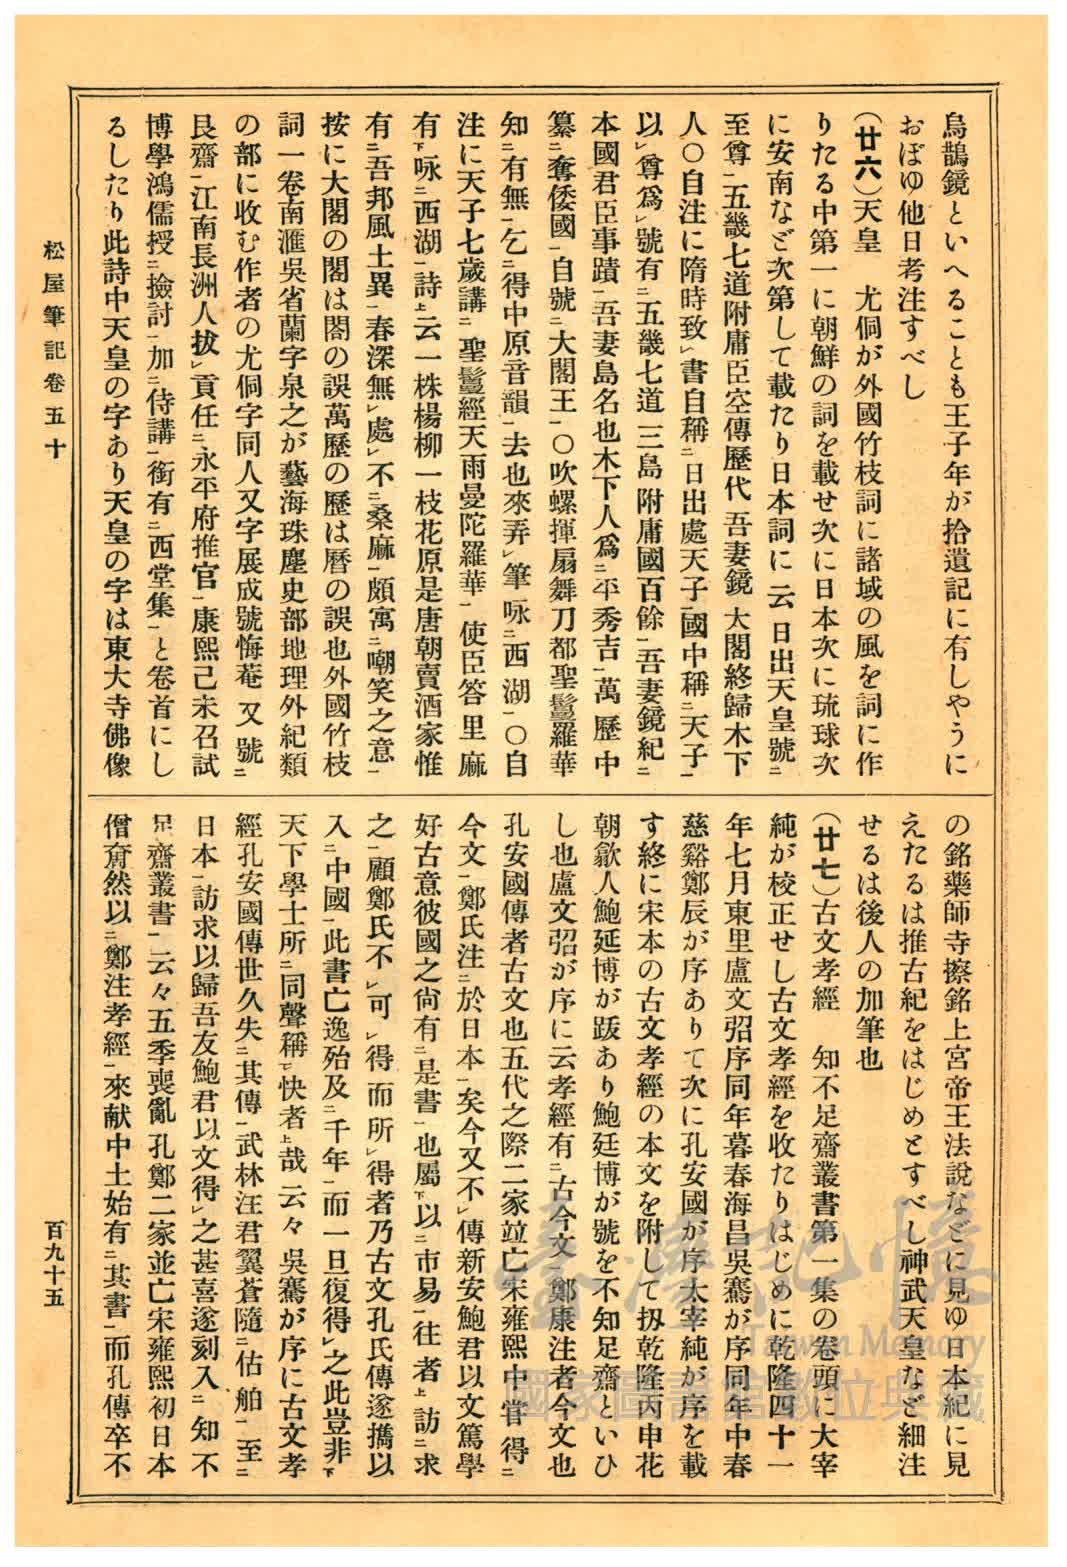 烏鵲鏡といへることも王子年が拾遺記に有しやうに
おぼゆ他日考注すべし
(廿六)天皇　尤侗が外國竹枝詞に諸域の風を詞に作
りたる中第一に朝鮮の詞を載せ次に日本次に琉球次
に安南など次第して載たり日本詞に云日出天皇號ニ
至尊一五畿七道附庸臣空傳歷代吾妻鏡大閣終歸木下
人〇自注に隋時致レ書自稱ニ日出處天子一國中稱ニ天子一
以レ尊爲レ號有ニ五畿七道三島附庸國百餘一吾妻鏡紀ニ
本國君臣事蹟一吾妻島名也木下人爲ニ平秀吉一萬歷中
纂ニ奪倭國一自號ニ大閣王一〇吹螺揮扇舞刀都聖鬘羅華
知ニ有無一乞ニ得中原音韻一去也來弄レ筆咏ニ西湖一〇自
注に天子七歲講ニ聖鬘經天雨曼陀羅華一使臣答里麻
有下咏ニ西湖一詩上云一株楊柳一枝花原是唐朝賣酒家惟
有ニ吾邦風土異一春深無レ處レ不ニ桑麻一頗寓ニ嘲笑之意一
按に大閣の閣は閤の誤萬歷の歷は曆の誤也外國竹枝
詞一卷南滙吳省蘭字泉之が藝海珠塵史部地理外紀類
の部に收む作者の尤侗字同人又字展成號悔菴又號ニ
艮齋一江南長洲人拔レ貢任ニ永平府推官一康熙己未召試
博學鴻儒授ニ撿討一加ニ侍講一銜有ニ西堂集一と卷首にし
るしたり此詩中天皇の字あり天皇の字は東大寺佛像
の銘藥師寺擦銘上宮帝王法說などに見ゆ日本紀に見
えたるは推古紀をはじめとすべし神武天皇など細注
せるは後人の加筆也
(廿七)古文孝經　知不足齋叢書第一集の卷頭に大宰
純が校正せし古文孝經を收たりはじめに乾隆四十一
年七月東里盧文弨序同年暮春海昌吳騫が序同年中春
慈谿鄭辰が序ありて次に孔安國が序太宰純が序を載
す終に宋本の古文孝經の本文を附して扨乾隆丙申花
朝歙人鮑延博が跋あり鮑廷博が號を不知足齋といひ
し也盧文弨が序に云孝經有ニ古今文一鄭康注者今文也
孔安國傳者古文也五代之際二家竝亡宋雍熙中嘗得ニ
今文一鄭氏注ニ於日本一矣今又不レ傳新安鮑君以文篤學
好古意彼國之尙有ニ是書一也屬下以ニ市易一往者上訪ニ求
之一顧鄭氏不レ可レ得而所レ得者乃古文孔氏傳遂擕以
入ニ中國一此書亡逸殆及ニ千年一而一旦復得レ之此豈非下
天下學士所ニ同聲稱一快者上哉云々吳騫が序に古文孝
經孔安國傳世久失ニ其傳一武林汪君翼蒼隨ニ估舶一至ニ
日本一訪求以歸吾友鮑君以文得レ之甚喜遂刻入ニ知不
足齋叢書一云々五季喪亂孔鄭二家並亡宋雍熙初日本
僧奝然以ニ鄭注孝經一來献中土始有ニ其書一而孔傳卒不
松屋筆記卷五十
百九十五
臺灣記憶
Taiwan Memory
國家圖書館數位典藏